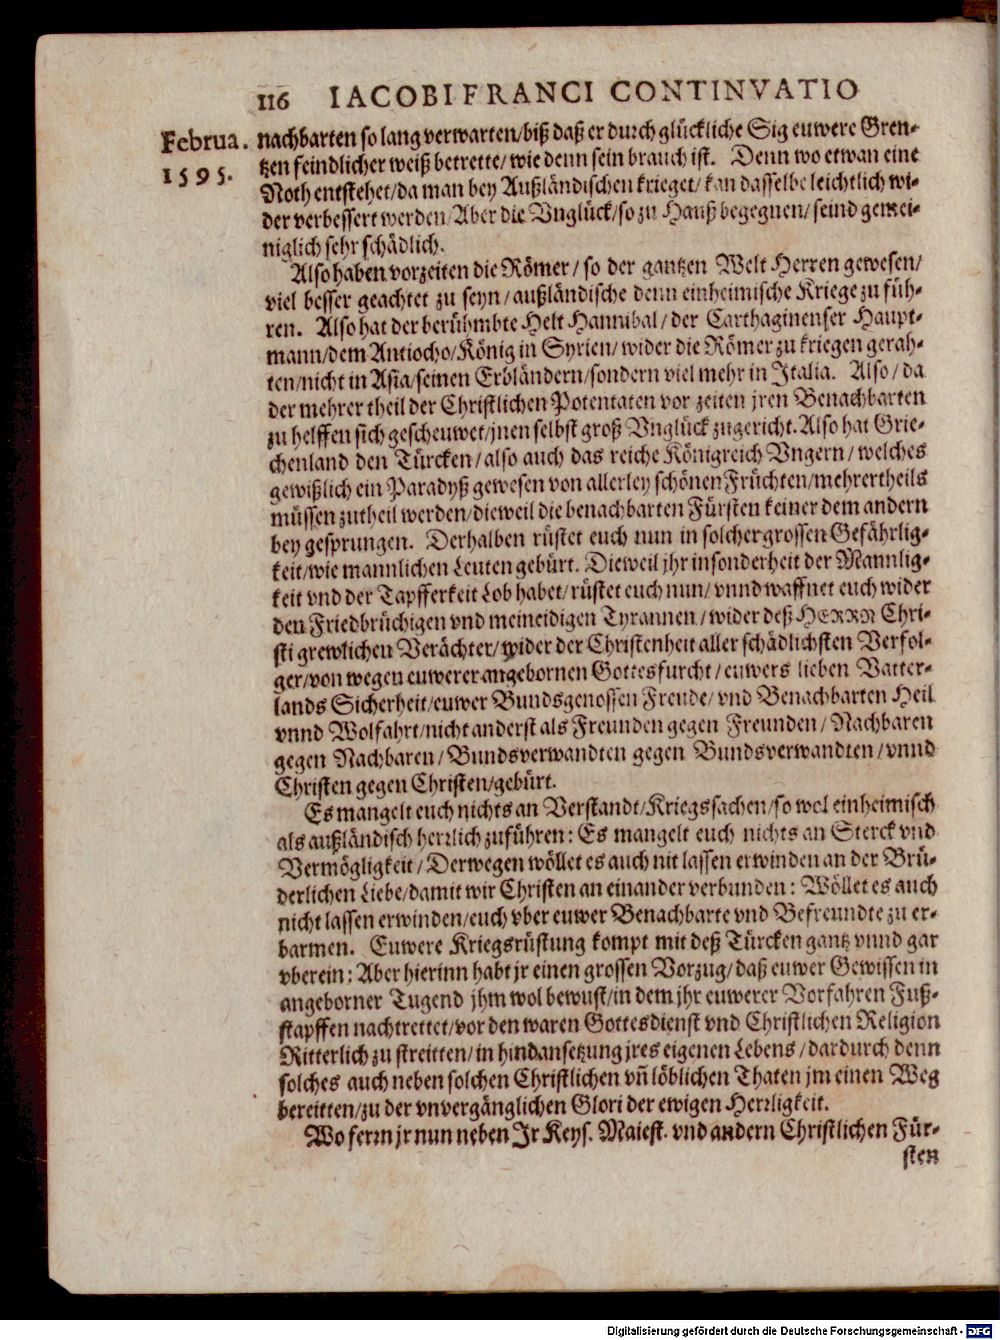 116 IACOBI FRANCI CONTINVATIO
Februa.
1595.
nachbarten so lang verwarten/biß daß er durch glückliche Sig euwere Gren-
tzen feindlicher weiß betrette/wie denn sein brauch ist. Denn wo etwan eine
Noth entstehet/da man bey Außländischen krieget/kan dasselbe leichtlich wi-
der verbessert werden/Aber die Vnglück/so zu Hauß begegnen/seind gemei-
niglich sehr schädlich.
Also haben vorzeiten die Römer/so der gantzen Welt Herren gewesen/
viel besser geachtet zu seyn/außländische denn einheimische Kriege zu füh-
ren. Also hat der berühmbte Helt Hannibal/der Carthaginenser Haupt-
mann/dem Antiocho/König in Syrien/wider die Römer zu kriegen gerah-
ten/nicht in Asia/seinen Erbländern/sondern viel mehr in Italia. Also/da
der mehrer theil der Christlichen Potentaten vor zeiten jren Benachbarten
zu helffen sich gescheuwet/jnen selbst groß Vnglück zugericht. Also hat Grie-
chenland den Türcken/also auch das reiche Königreich Vngern/welches
gewißlich ein Paradyß gewesen von allerley schönen Früchten/mehrertheils
müssen zutheil werden/dieweil die benachbarten Fürsten keiner dem andern
bey gesprungen. Derhalben rüstet euch nun in solcher grossen Gefährlig-
keit/wie mannlichen Leuten gebürt. Dieweil jhr insonderheit der Mannlig-
keit vnd der Tapfferkeit Lob habet/rüstet euch nun/vnnd waffnet euch wider
den Friedbrüchigen vnd meineidigen Tyrannen/wider deß HERRN Chri-
sti grewlichen Verächter/wider der Christenheit aller schädlichsten Verfol-
ger/von wegen euwerer angebornen Gottesfurcht/euwers lieben Vatter-
lands Sicherheit/euwer Bundsgenossen Freude/vnd Benachbarten Heil
vnnd Wolfahrt/nicht anderst als Freunden gegen Freunden/Nachbaren
gegen Nachbaren/Bundsverwandten gegen Bundsverwandten/vnnd
Christen gegen Christen/gebürt.
Es mangelt euch nichts an Verstandt/Kriegssachen/so wol einheimisch
als außländisch herrlich zuführen: Es mangelt euch nichts an Sterck vnd
Vermögligkeit/Derwegen wöllet es auch nit lassen erwinden an der Brü-
derlichen Liebe/damit wir Christen an einander verbunden: Wöllet es auch
nicht lassen erwinden/euch vber euwer Benachbarte vnd Befreundte zu er-
barmen. Euwere Kriegsrüstung kompt mit deß Türcken gantz vnnd gar
vberein: Aber hierinn habt jr einen grossen Vorzug/daß euwer Gewissen in
angeborner Tugend jhm wol bewust/in dem jhr euwerer Vorfahren Fuß-
stapffen nachtrettet/vor den waren Gottesdienst vnd Christlichen Religion
Ritterlich zu streitten/in hindansetzung jres eigenen Lebens/dardurch denn
solches auch neben solchen Christlichen vñ löblichen Thaten jm einen Weg
bereitten/zu der vnvergänglichen Glori der ewigen Herrligkeit.
Wo fermn jr nun neben Ir Keys. Maiest. vnd andern Christlichen Für-
sten
Digitalisierung gefördert durch die Deutsche Forschungsgemeinschaft - DFG